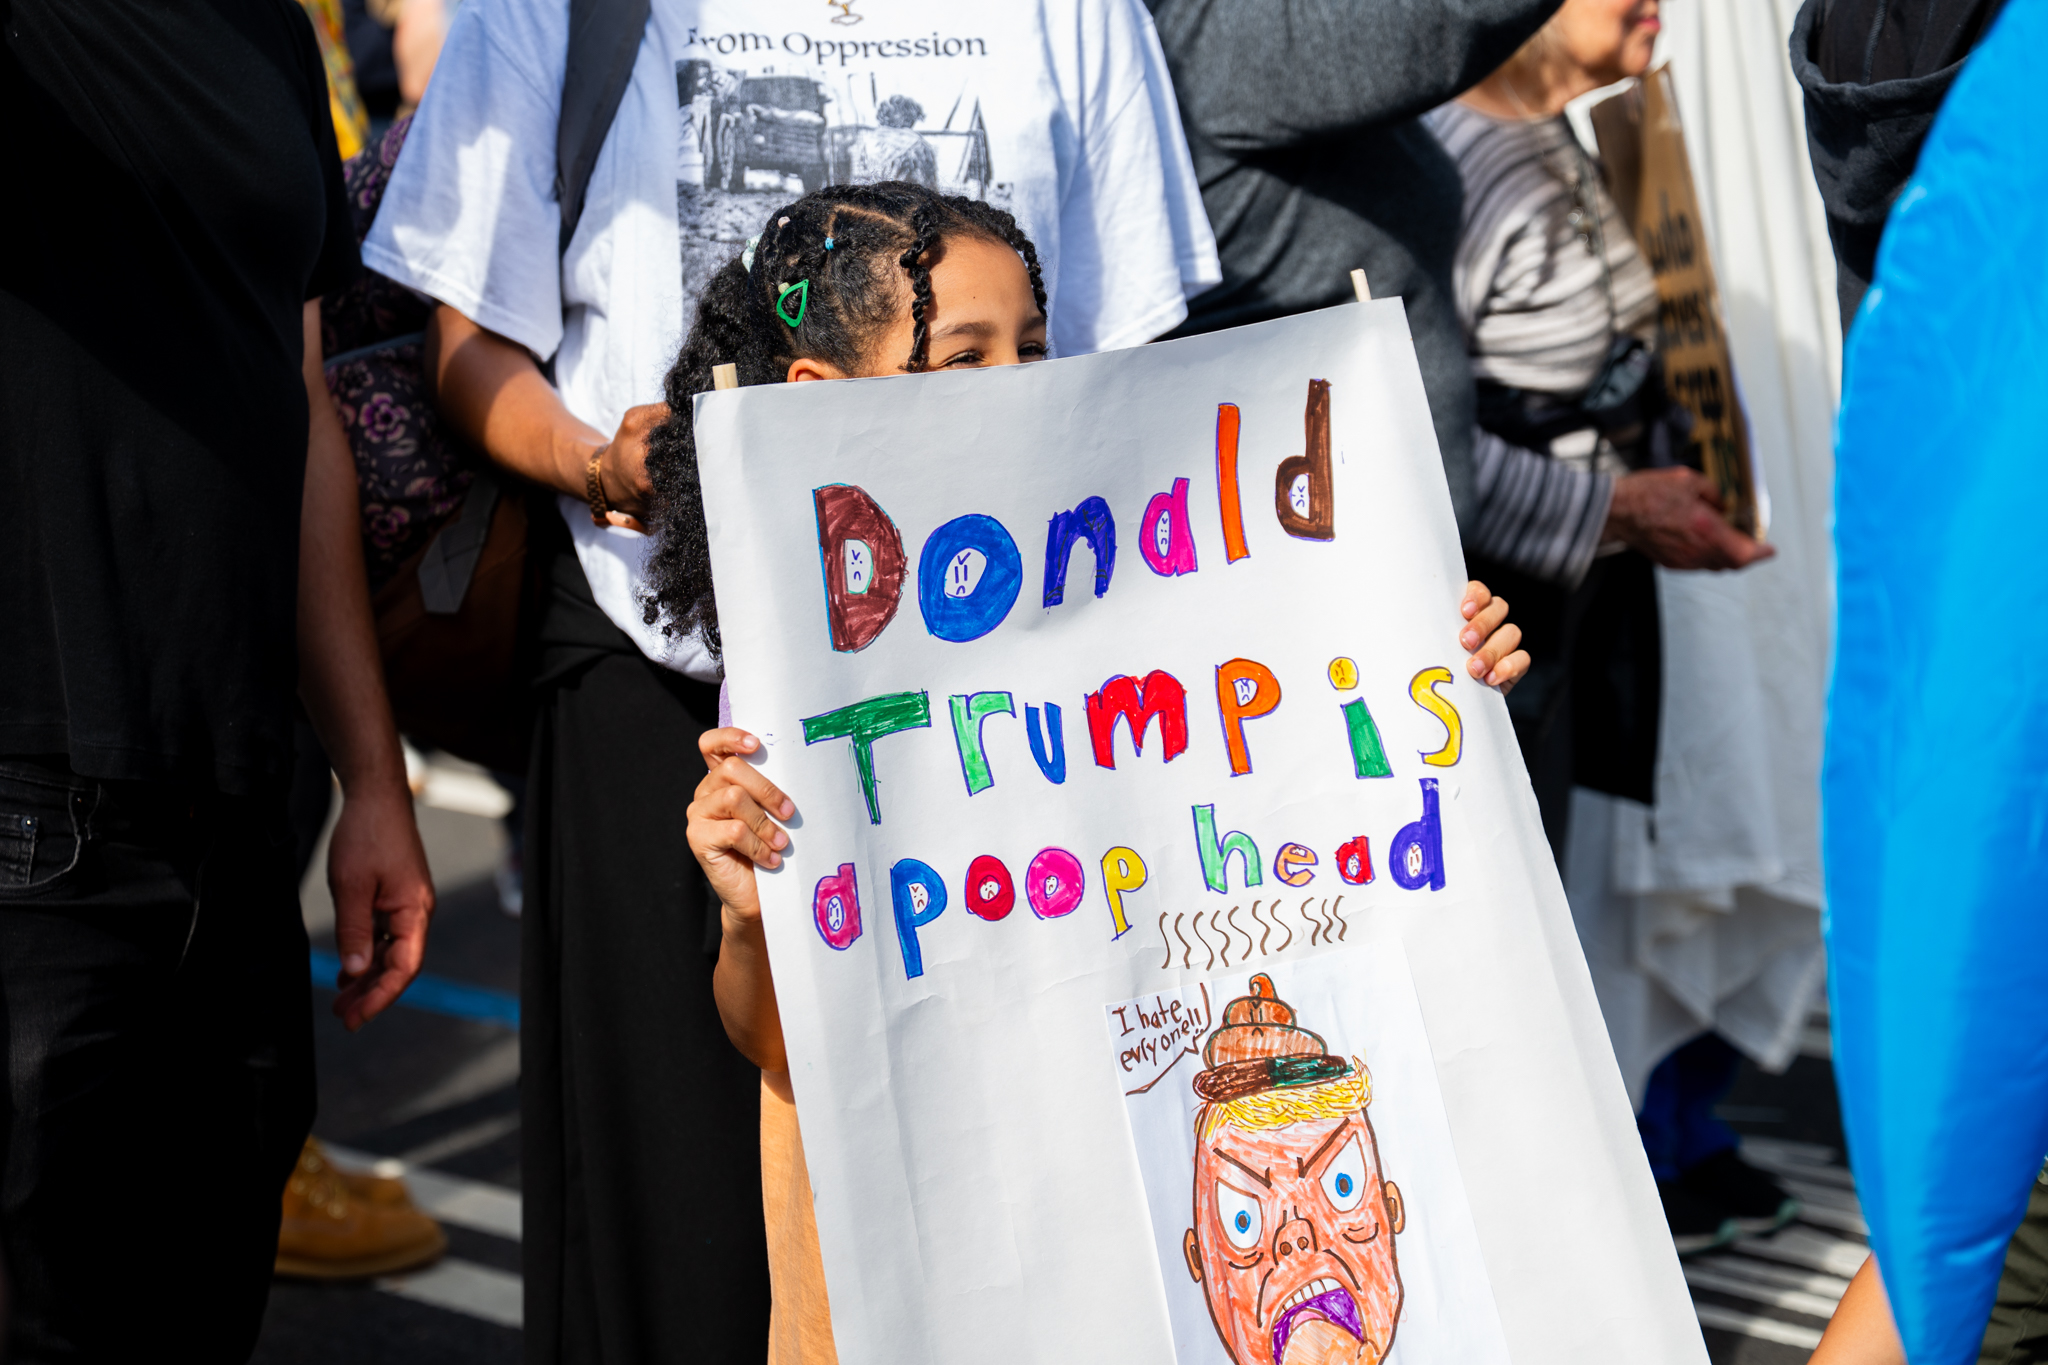 From Oppression
who
Donald
Trump is
a poop head
I hate
evryone!!